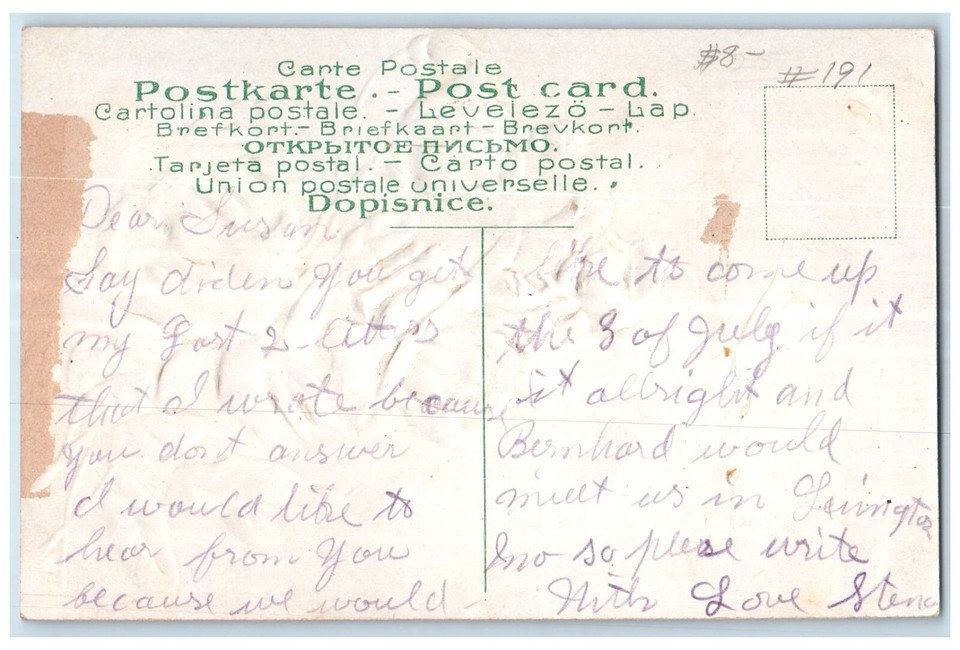 #8-
#191
Carte Postale
Postkarte. - Post card.
Cartolina postale. - Levelezö - Lap.
Brefkort. - Briefkaart - Brevkort.
ОТКРЫТОЕ ПИСЬМО.
Tarjeta postal. - Carto postal.
Union postale universelle.
Dopisnice.
Dear Susan
Say diden you get
my Last 2 letters
that I wrote because
you dont answer
I would like to
hear from you
because we would
like to come up
the 3 of July if it
it allright and
Bernhard would
meet us in
so please write
With Love